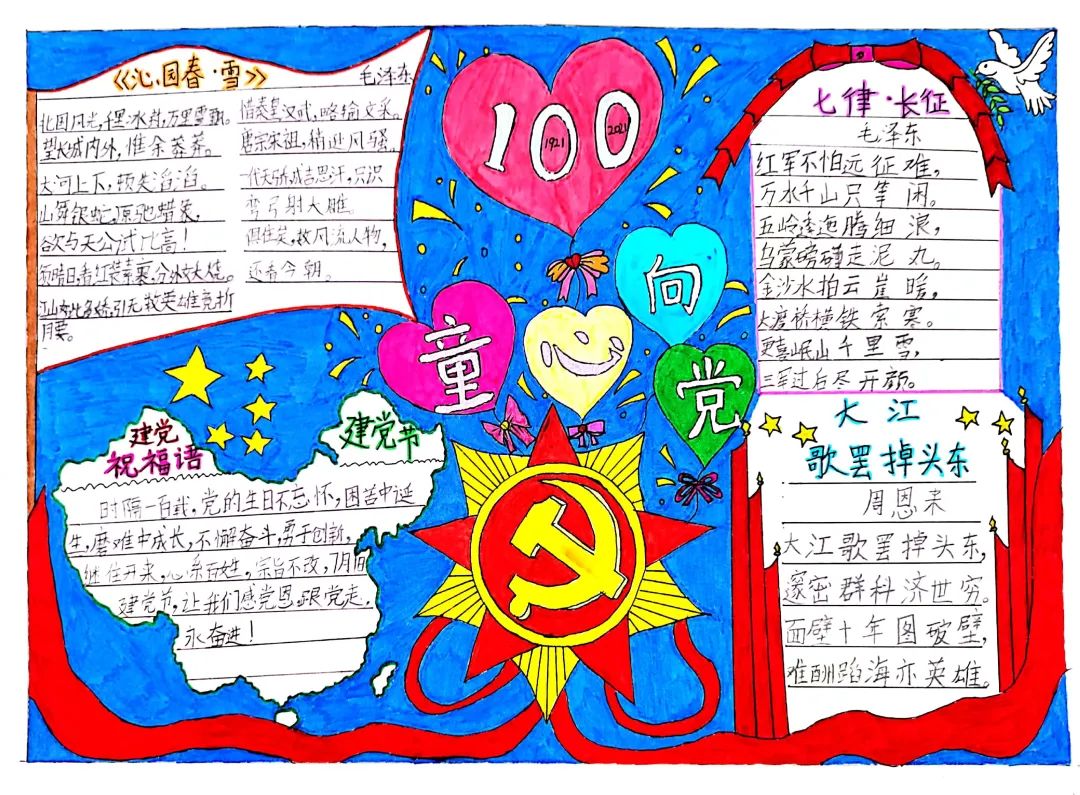 《沁园春·雪》
毛泽东
北国风光,千里冰封,万里雪飘。
望长城内外,惟余莽莽。
大河上下,顿失滔滔。
山舞银蛇,原驰蜡象,
欲与天公试比高!
须晴日,看红装素裹,分外妖娆。
江山如此多娇,引无数英雄竞折
腰。
惜秦皇汉武,略输文采。
唐宗宋祖,稍逊风骚。
一代天骄,成吉思汗,只识
弯弓射大雕。
俱往矣,数风流人物,
还看今朝。
100
1921
2021
童
心
向
党
七律·长征
毛泽东
红军不怕远征难,
万水千山只等闲。
五岭逶迤腾细浪,
乌蒙磅礴走泥丸。
金沙水拍云崖暖,
大渡桥横铁索寒。
更喜岷山千里雪,
三军过后尽开颜。
建党
祝福语
建党节
时隔一百载,党的生日不忘怀,困苦中诞
生,磨难中成长,不懈奋斗,勇于创新,
继往开来,心系百姓,宗旨不改,7月1日
建党节,让我们感党恩,跟党走,
永奋进!
大江
歌罢掉头东
周恩来
大江歌罢掉头东,
邃密群科济世穷。
面壁十年图破壁,
难酬蹈海亦英雄。